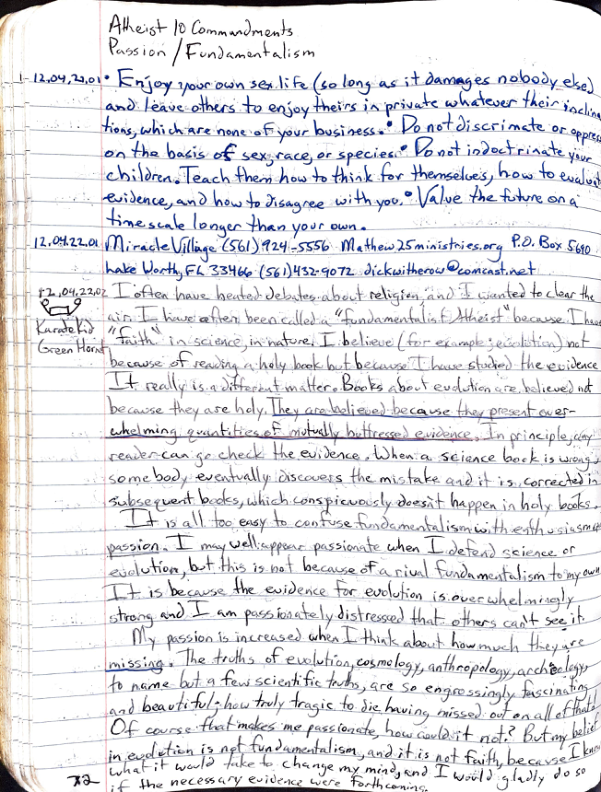 Atheist 10 Commandments
Passion / Fundamentalism
12,04,21,01 • Enjoy your own sex life (so long as it damages nobody else)
and leave others to enjoy theirs in private whatever their inclina
tions, which are none of your business. • Do not discriminate or oppress
on the basis of sex, race, or species. • Do not indoctrinate your
children. Teach them how to think for themselves, how to evaluat
evidence, and how to disagree with you. • Value the future on a
timescale longer than your own.
12,04,22,01 Miracle Village (561) 924-5556 Mathew25ministries.org P.O. Box 5690
Lake Worth, FL 33466 (561) 432-9072 dickwitherow@comcast.net
12,04,22,02 I often have heated debates about religion and I wanted to clear the
air. I have often been called a "fundamentalist Atheist" because I have
Karate Kid "faith" in science, in nature. I believe (for example: evolution) not
Green Hornt because of reading a holy book but because I have studied the evidence
It really is a different matter. Books about evolution are believed not
because they are holy. They are believed because they present over-
whelming quantities of mutually buttressed evidence. In principle, any
reader can go check the evidence. When a science book is wrong,
somebody eventually discovers the mistake and it is corrected in
subsequent books, which conspicuously doesn't happen in holy books.
It is all too easy to confuse fundamentalism with enthusiasm
passion. I may well appear passionate when I defend science or
evolution, but this is not because of a rival fundamentalism to my own
It is because the evidence for evolution is overwhelmingly
strong and I am passionately distressed that others can't see it.
My passion is increased when I think about how much they are
missing. The truths of evolution, cosmology, anthropology, archeology,
to name but a few scientific truths, are so engrossingly fascinating
and beautiful; how truly tragic to die having missed out on all of that!
Of course that makes me passionate, how could it not? But my belief
in evolution is not fundamentalism, and it is not faith, because I know
what it would take to change my mind, and I would gladly do so
72 if the necessary evidence were forthcoming.